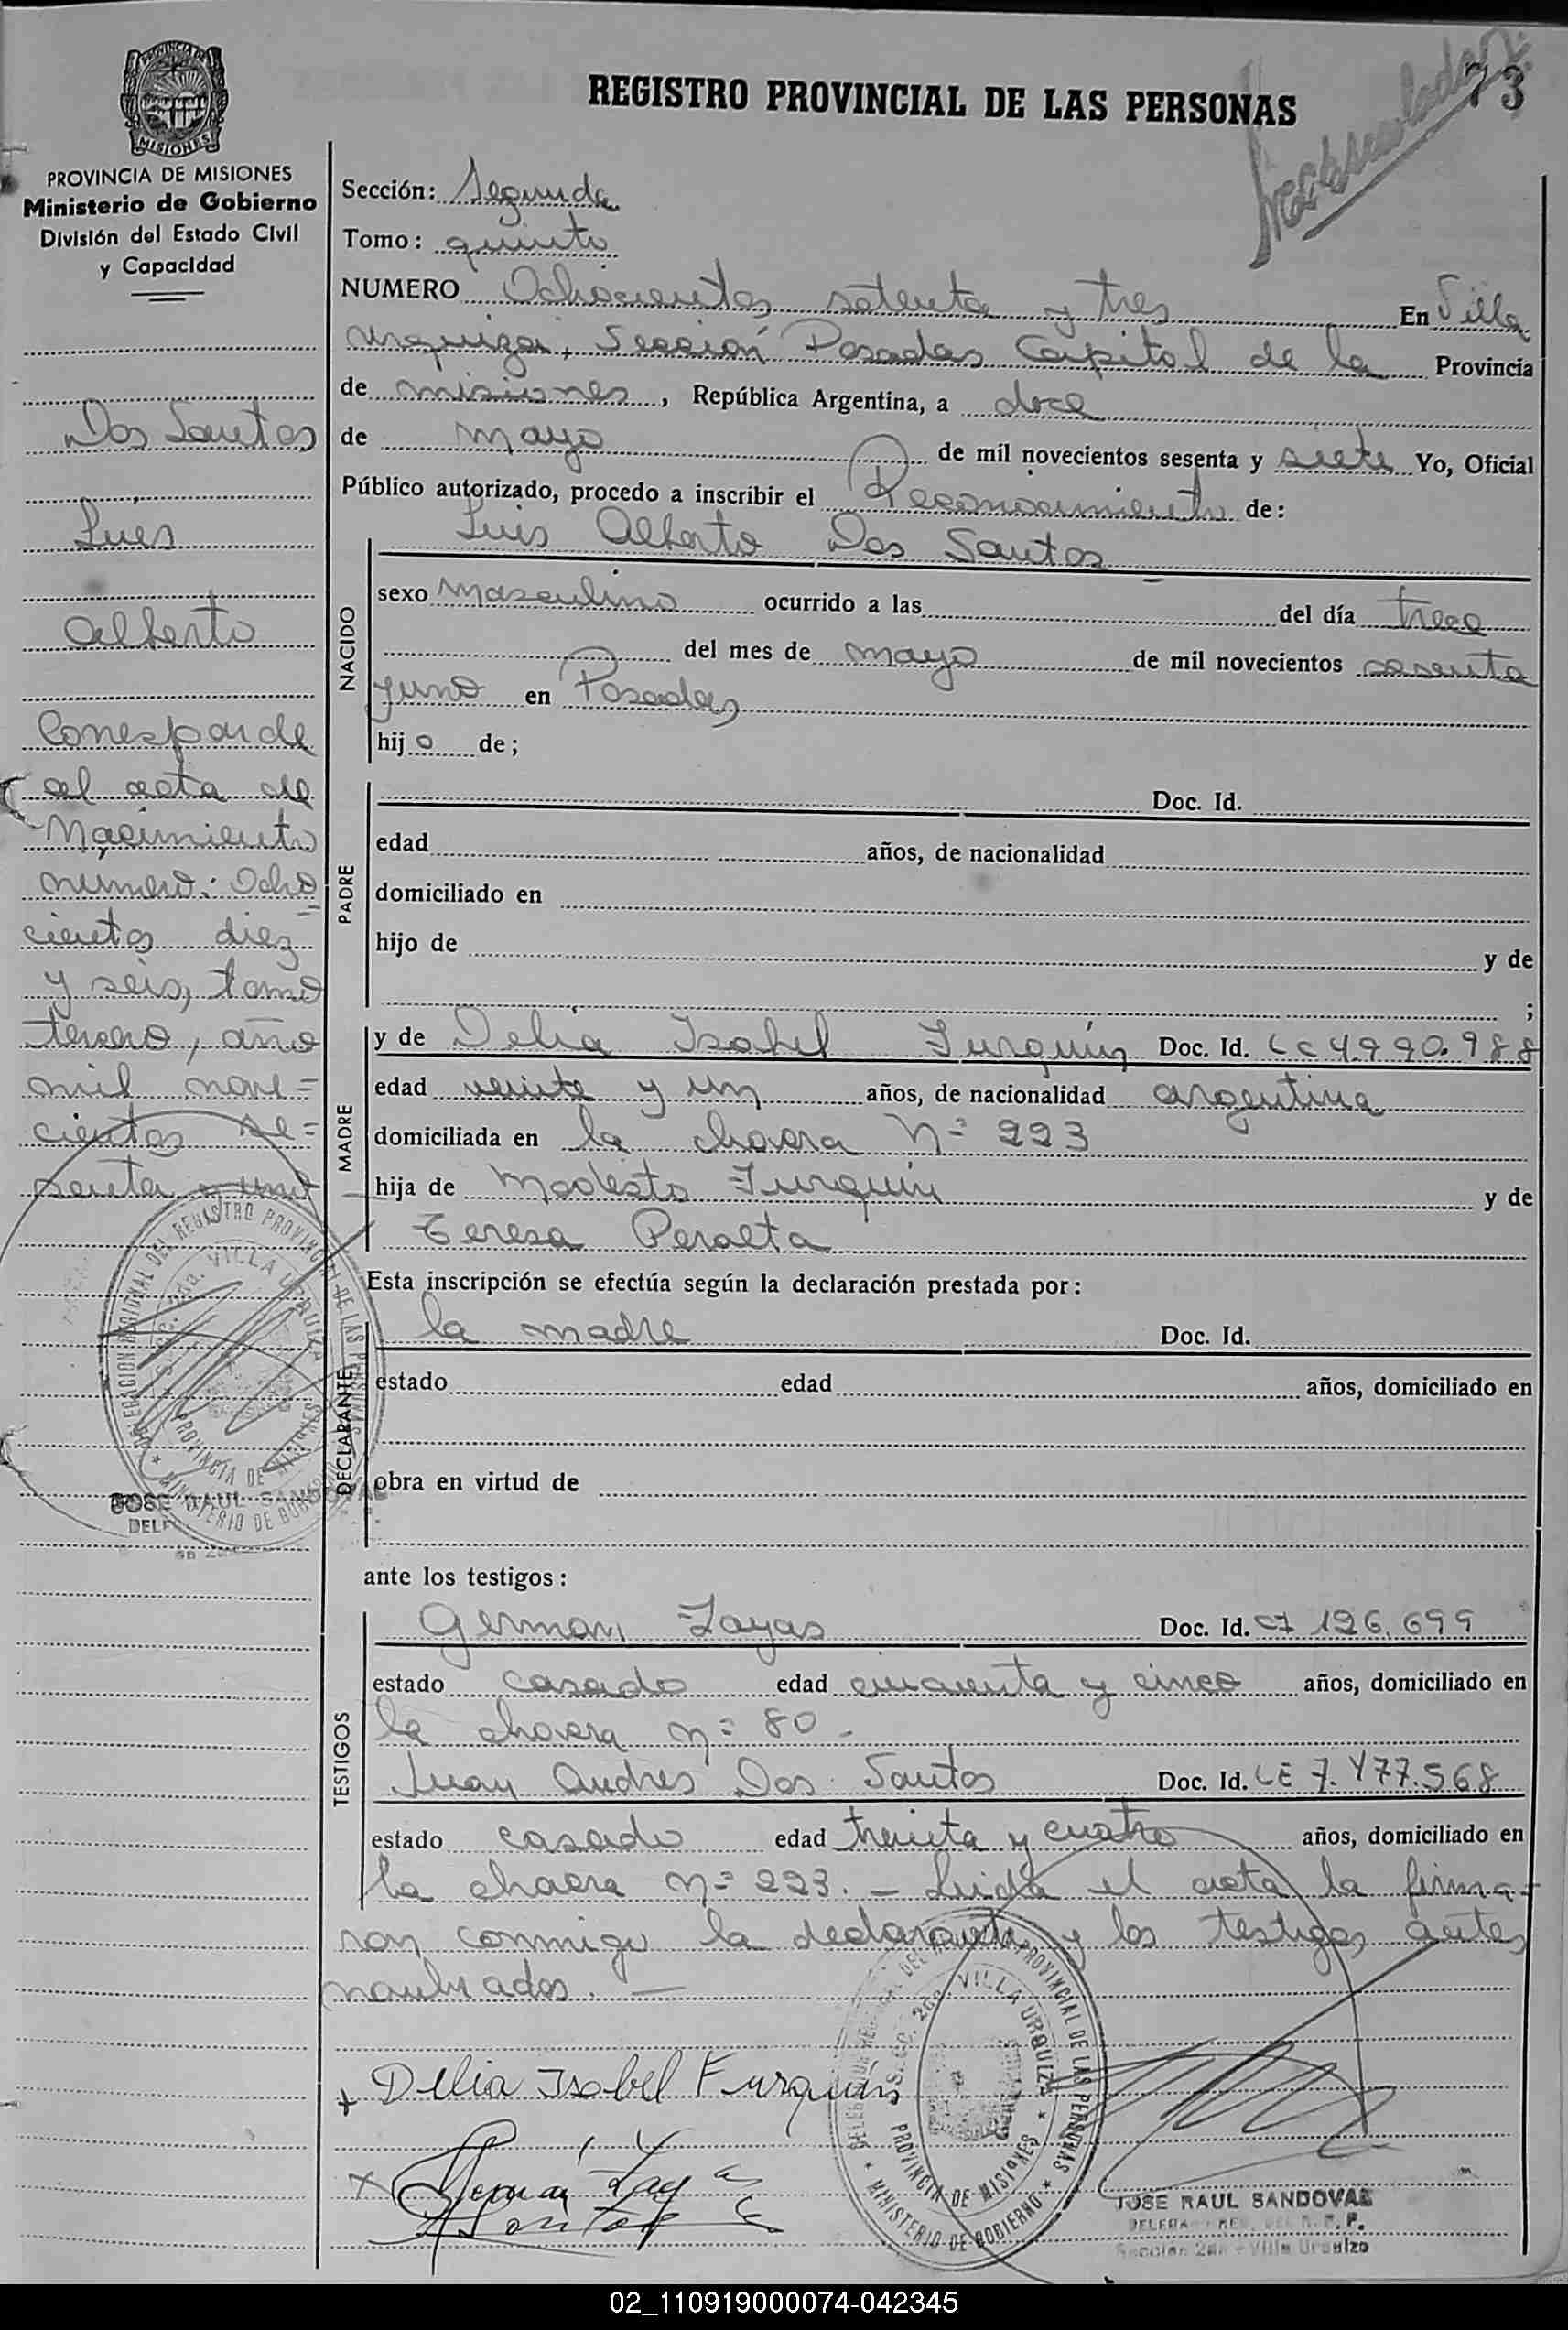 73
REGISTRO PROVINCIAL DE LAS PERSONAS
MISIONES
PROVINCIA DE MISIONES
Ministerio de Gobierno
División del Estado Civil
y Capacidad
Dos Santos
Luis
Alberto
Corresponde
al acta de
Nacimiento
número: Ocho
cientos diez
y seis, tomo
tercero, año
mil nove=
cientos se=
senta y uno
JOSE RAUL SANDOVAL
Sección: Segunda
Tomo: quinto
NUMERO Ochocientos setenta y tres En Villa
Urquiza, Sección Posadas Capital de la Provincia
de misiones, República Argentina, a doce
de mayo de mil novecientos sesenta y siete Yo, Oficial
Público autorizado, procedo a inscribir el Reconocimiento de:
Luis Alberto Dos Santos
NACIDO
sexo masculino ocurrido a las del día trece
del mes de mayo de mil novecientos sesenta
y uno en Posadas
hijo de;
PADRE
Doc. Id.
edad años, de nacionalidad
domiciliado en
hijo de y de
;
MADRE
y de Delia Isabel Furquin Doc. Id. LC 4.990.988
edad veinte y un años, de nacionalidad argentina
domiciliada en la chacra Nº 223
hija de Modesto Furquin y de
Teresa Peralta
Esta inscripción se efectúa según la declaración prestada por:
DECLARANTE
la madre Doc. Id.
estado edad años, domiciliado en
obra en virtud de
ante los testigos:
TESTIGOS
German Zayas Doc. Id. CI 126.699
estado casado edad cincuenta y cinco años, domiciliado en
la chacra nº 80 -
Juan Andres Dos Santos Doc. Id. LE 7.477.568
estado casado edad treinta y cuatro años, domiciliado en
la chacra nº 223. - Leida el acta la firma-
ron conmigo la declarante y los testigos antes
nombrados. -
DELEGACION REGIONAL DEL REGISTRO PROVINCIAL DE LAS PERSONAS
SECC. 2da. VILLA URQUIZA
PROVINCIA DE MISIONES
MINISTERIO DE GOBIERNO
+ Delia Isabel Furquin
x German Zayas
JOSE RAUL SANDOVAL
Sección 2da - Villa Urquiza
02_110919000074-042345